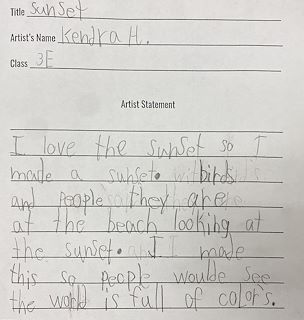 Title Sunset
Artist's Name Kendra H.
Class 3E
Artist Statement
I love the sunset so I
made a sunset. birds
and people they are
at the beach looking at
the sunset. I made
this so people woulde see
the world is full of color's.